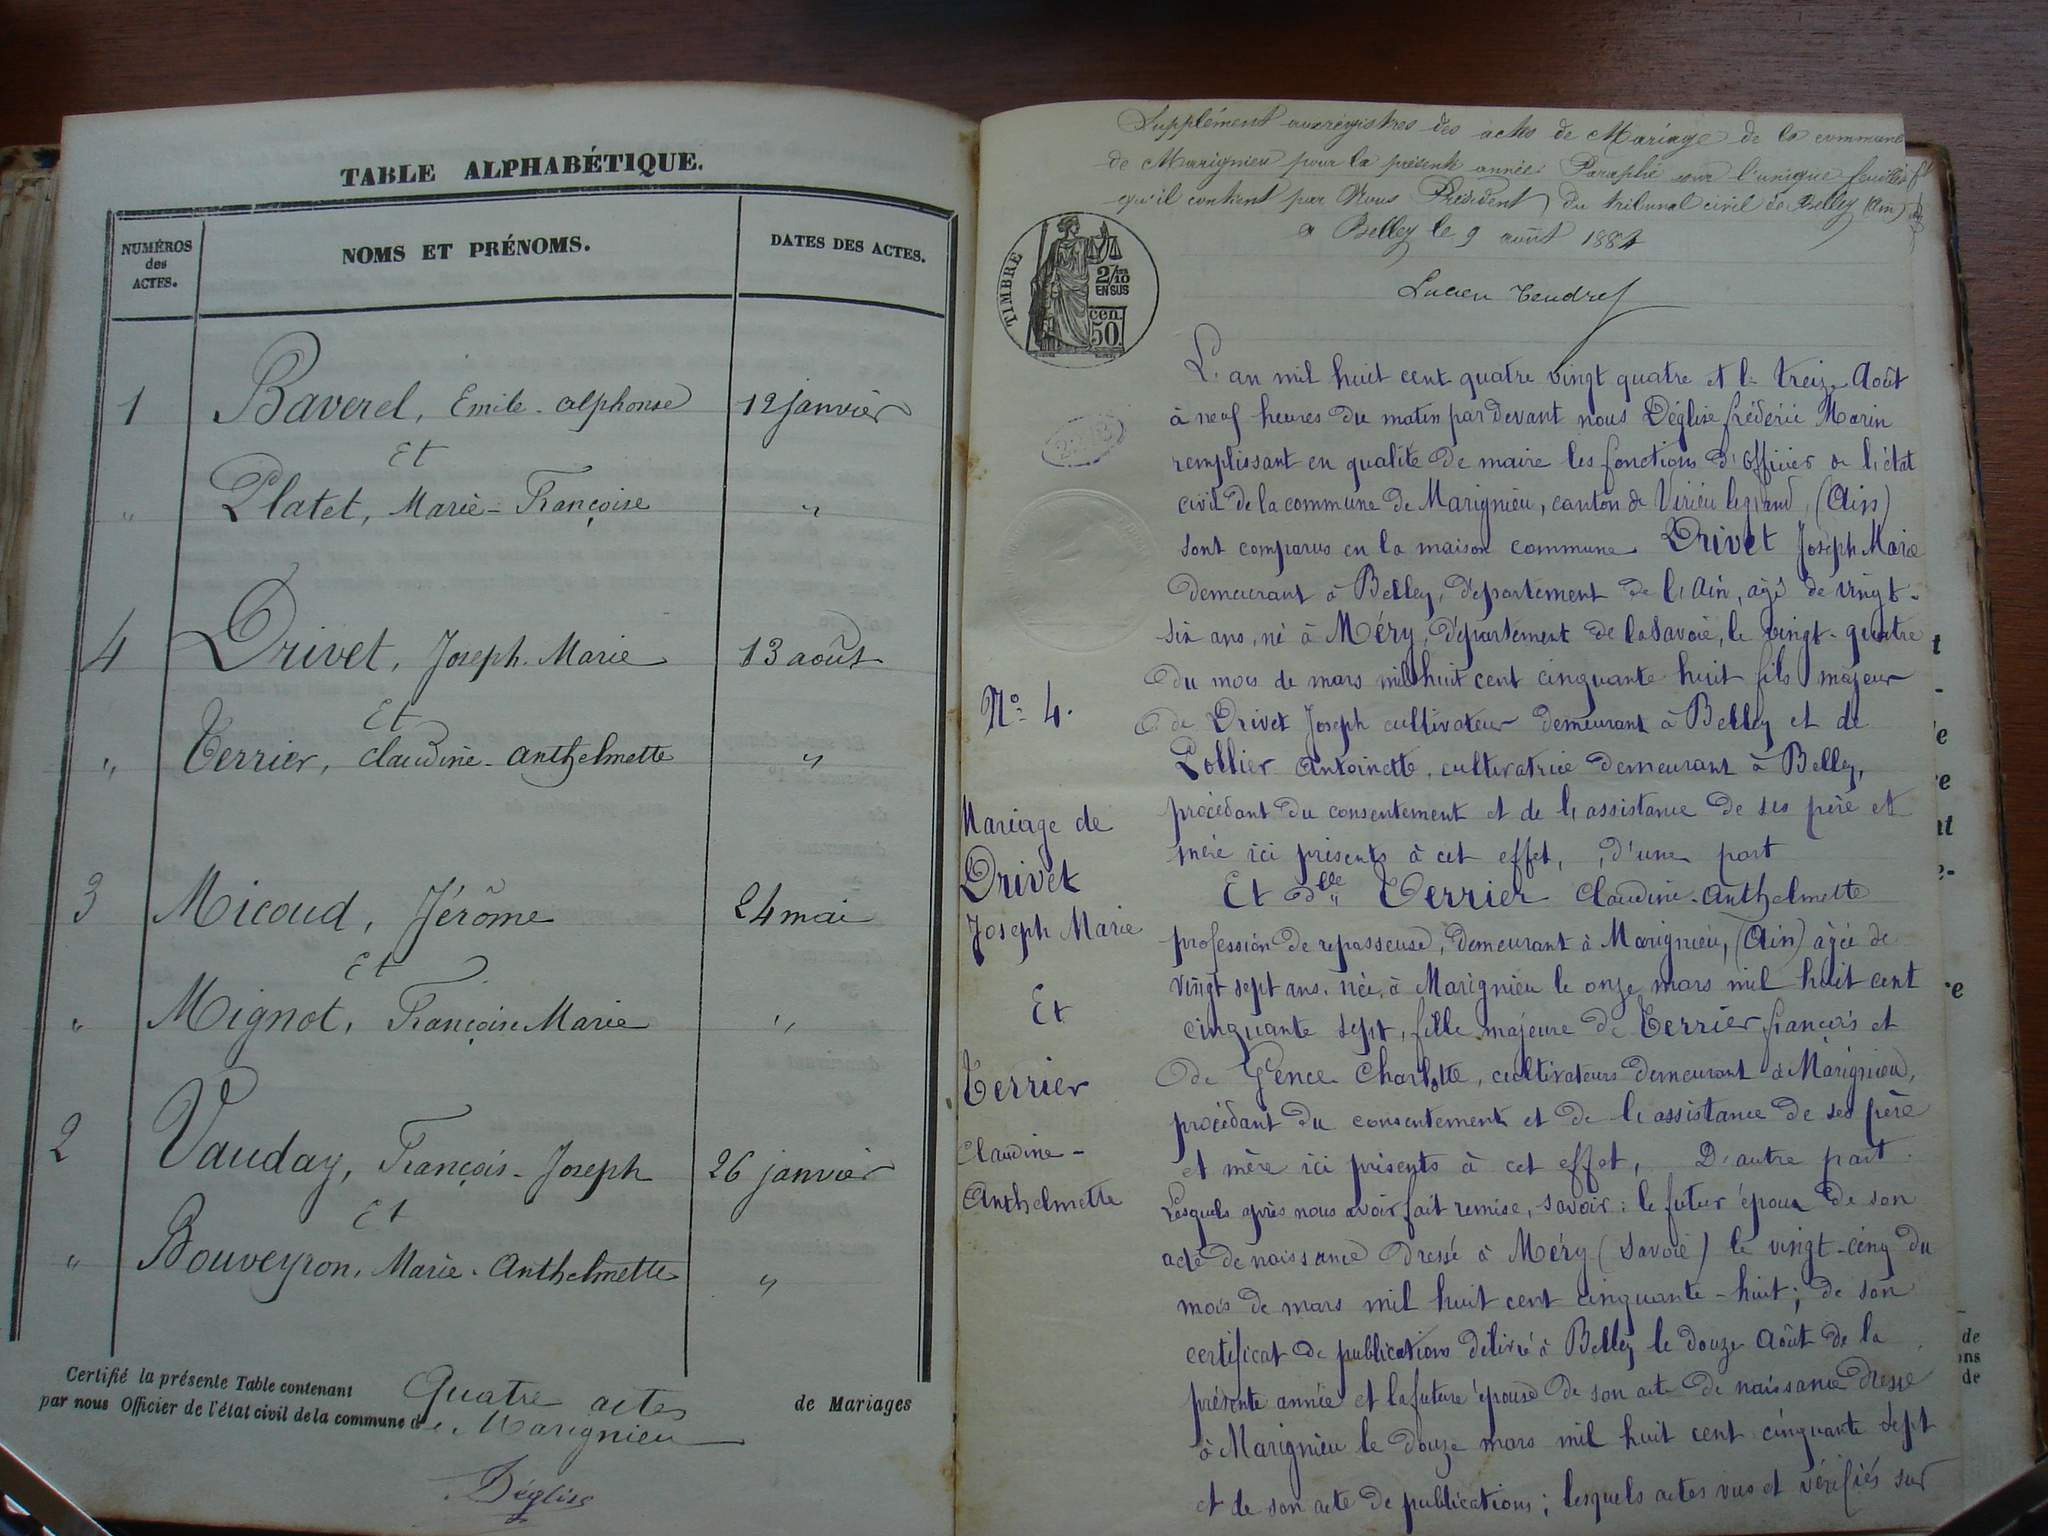 TABLE ALPHABÉTIQUE.
NUMÉROS des ACTES.
NOMS ET PRÉNOMS.
DATES DES ACTES.
1 Baverel, Emile-Alphonse 12 janvier
Et
" Platet, Marie-Françoise "
4 Drivet, Joseph-Marie 13 août
Et
" Terrier, Claudine-Anthelmette "
3 Micoud, Jérôme 24 mai
Et
" Mignot, Françoise Marie "
2 Vauday, François-Joseph 26 janvier
Et
" Bouveyron, Marie-Anthelmette "
Certifié la présente Table contenant Quatre actes de Mariages
par nous Officier de l'état civil de la commune de Marignieu
Déglise
Supplément aux registres des actes de Mariage de la commune
de Marignieu pour la présente année Paraphé sur l'unique feuillet
qu'il contient par Nous Président du tribunal civil de Belley (Ain)
à Belley le 9 août 1884
Lucien Tendret
TIMBRE
2/10
EN SUS
cen.
50
L'an mil huit cent quatre vingt quatre et le treize Août
à neuf heures du matin par devant nous Déglise frédéric Marin
remplissant en qualité de maire les fonctions d'officier de l'état
civil de la commune de Marignieu, canton de Virieu legrand, (Ain)
sont comparus en la maison commune Drivet Joseph Marie
demeurant à Belley, département de l'Ain, âgé de vingt-
six ans, né à Méry, département de la Savoie, le vingt-quatre
du mois de mars mil huit cent cinquante huit fils majeur
de Drivet Joseph cultivateur demeurant à Belley et de
Pollier Antoinette, cultivatrice demeurant à Belley,
procédant du consentement et de l'assistance de ses père et
mère ici présents à cet effet, d'une part
Et Dlle Terrier Claudine-Anthelmette
profession de repasseuse, demeurant à Marignieu, (Ain) âgée de
vingt sept ans, née à Marignieu le onze mars mil huit cent
cinquante sept, fille majeure de Terrier françois et
de Gence Charlotte, cultivateurs demeurant à Marignieu,
procédant du consentement et de l'assistance de ses père
et mère ici présents à cet effet, D'autre part.
Lesquels après nous avoir fait remise, savoir: le futur époux de son
acte de naissance dressé à Méry (Savoie) le vingt-cinq du
mois de mars mil huit cent cinquante-huit; de son
certificat de publications délivré à Belley le douze Août de la
présente année et la future épouse de son acte de naissance dressé
à Marignieu le douze mars mil huit cent cinquante sept
et de son acte de publications; lesquels actes vus et vérifiés sur
No 4.
Mariage de
Drivet
Joseph Marie
Et
Terrier
Claudine-
Anthelmette